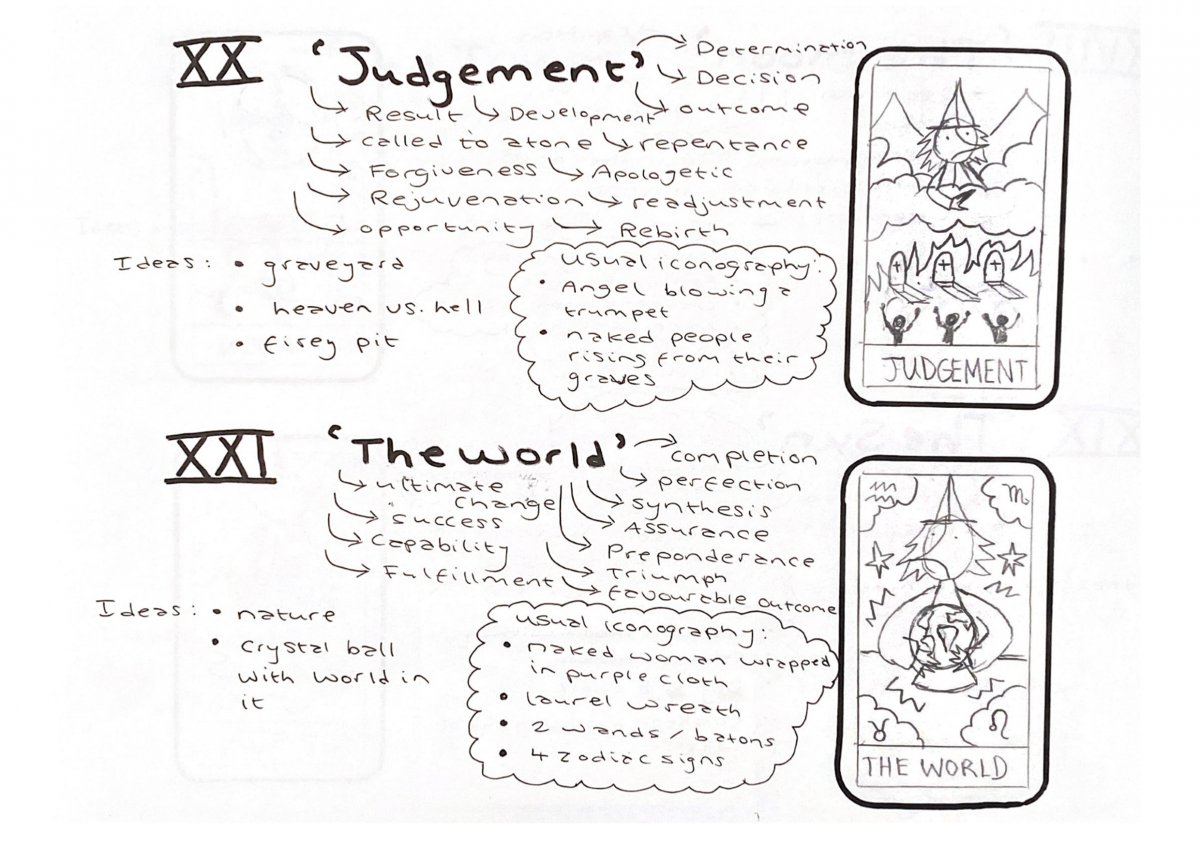 XX 'Judgement'
Determination
Decision
outcome
Result Development
called to atone repentance
Forgiveness Apologetic
Rejuvenation readjustment
opportunity Rebirth
Ideas: • graveyard
• heaven vs. hell
• firey pit
usual iconography:
• Angel blowing a
trumpet
• naked people
rising from their
graves
JUDGEMENT
XXI 'The world'
completion
perfection
synthesis
Assurance
Preponderance
Triumph
favourable outcome
ultimate
change
success
Capability
Fulfillment
Ideas: • nature
• crystal ball
with world in
it
usual iconography:
• naked woman wrapped
in purple cloth
• laurel wreath
• 2 wands / batons
• 4 zodiac signs
♒ ♏
♉ ♌
THE WORLD